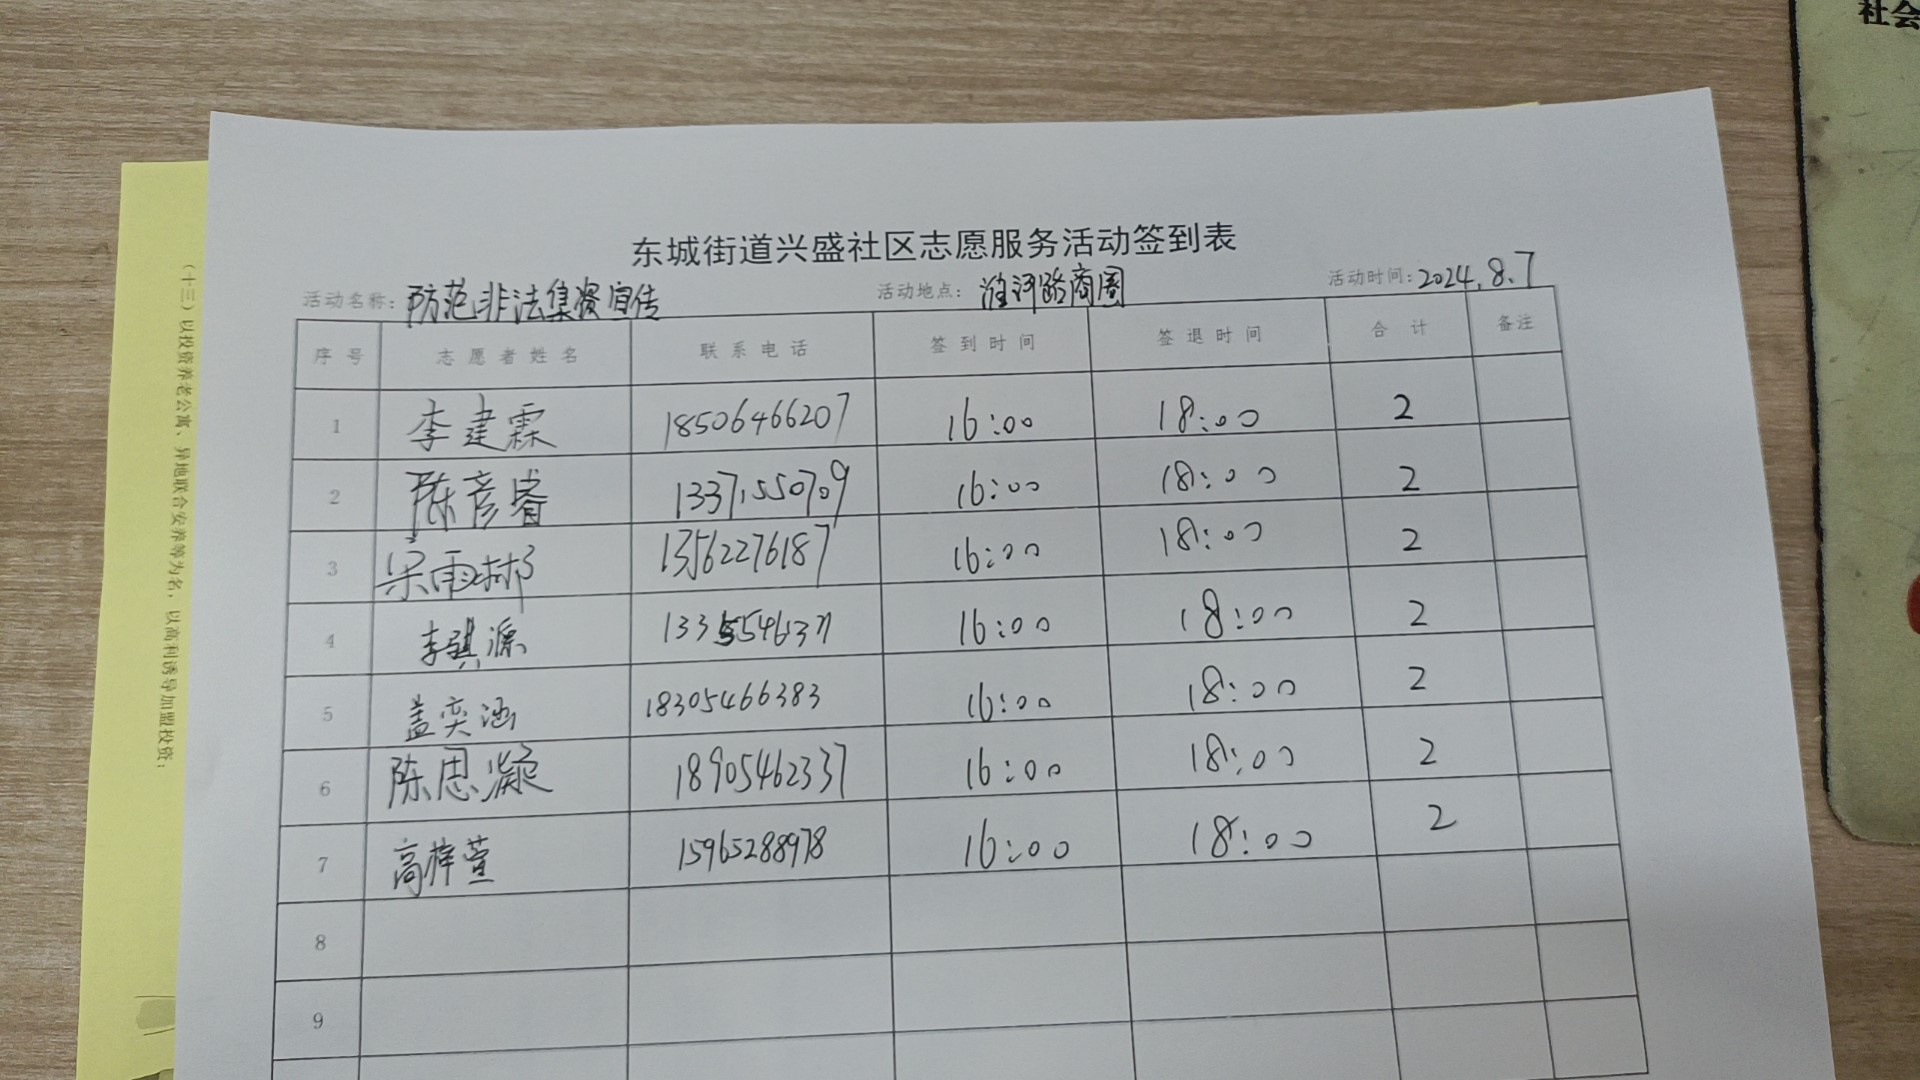 社会
东城街道兴盛社区志愿服务活动签到表
活动名称: 防范非法集资宣传 活动地点: 淮河路商圈 活动时间: 2024.8.7
序号 志愿者姓名 联系电话 签到时间 签退时间 合计 备注
1 李建霖 18506466207 16:00 18:00 2
2 陈彦睿 13371550709 16:00 18:00 2
3 宋雨彬 13562276187 16:00 18:00 2
4 李骐源 13355546371 16:00 18:00 2
5 盖奕涵 18305466383 16:00 18:00 2
6 陈思凝 18905462337 16:00 18:00 2
7 高梓萱 15965288978 16:00 18:00 2
8
9
(十三)以投资养老公寓、异地联合安养等为名,以高利诱导加盟投资;